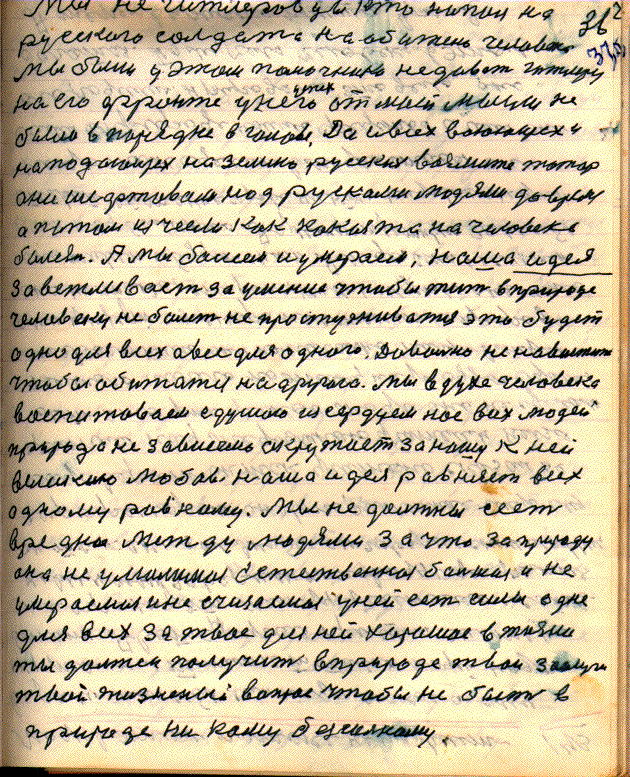 Мы не Гитлеров ули кто напал на
русского солдата на обижено человека 36 2
Мы были у этом помочники не дават гитлеру 37
на его фронте у него умех отнтий мысли не
было в порядке в голове, Да и всех воюющех и
нападающех на землю русских
они шедртовали под рускими людями до время
а потом исчезли как какията на человека
болезн. А мы болеем и умераем, наша идея
заветливает за умение чтобы жит в природе
человеку не болет не простуживатся это будет
одно для всех а все для одного. Довольно не
чтобы обижатся на другого. Мы в духе человека
воспитоваем сдушою и сердцем нас вех людей
природа не зависемо окружает за нашу к ней
великаю любов. наша идея равняет всех
одному равному. Мы не должны сеет
вредно между людями за что за природу
она не умолимоя естественноя болшая и не
умераемоя и не считаемоя у ней ест силы одне
для всех за твое для ней хорошое в жизни
ты должен получит в природе твои заслуги
твой жизненый вопрос чтобы не быт в
природе ни кому безсилному